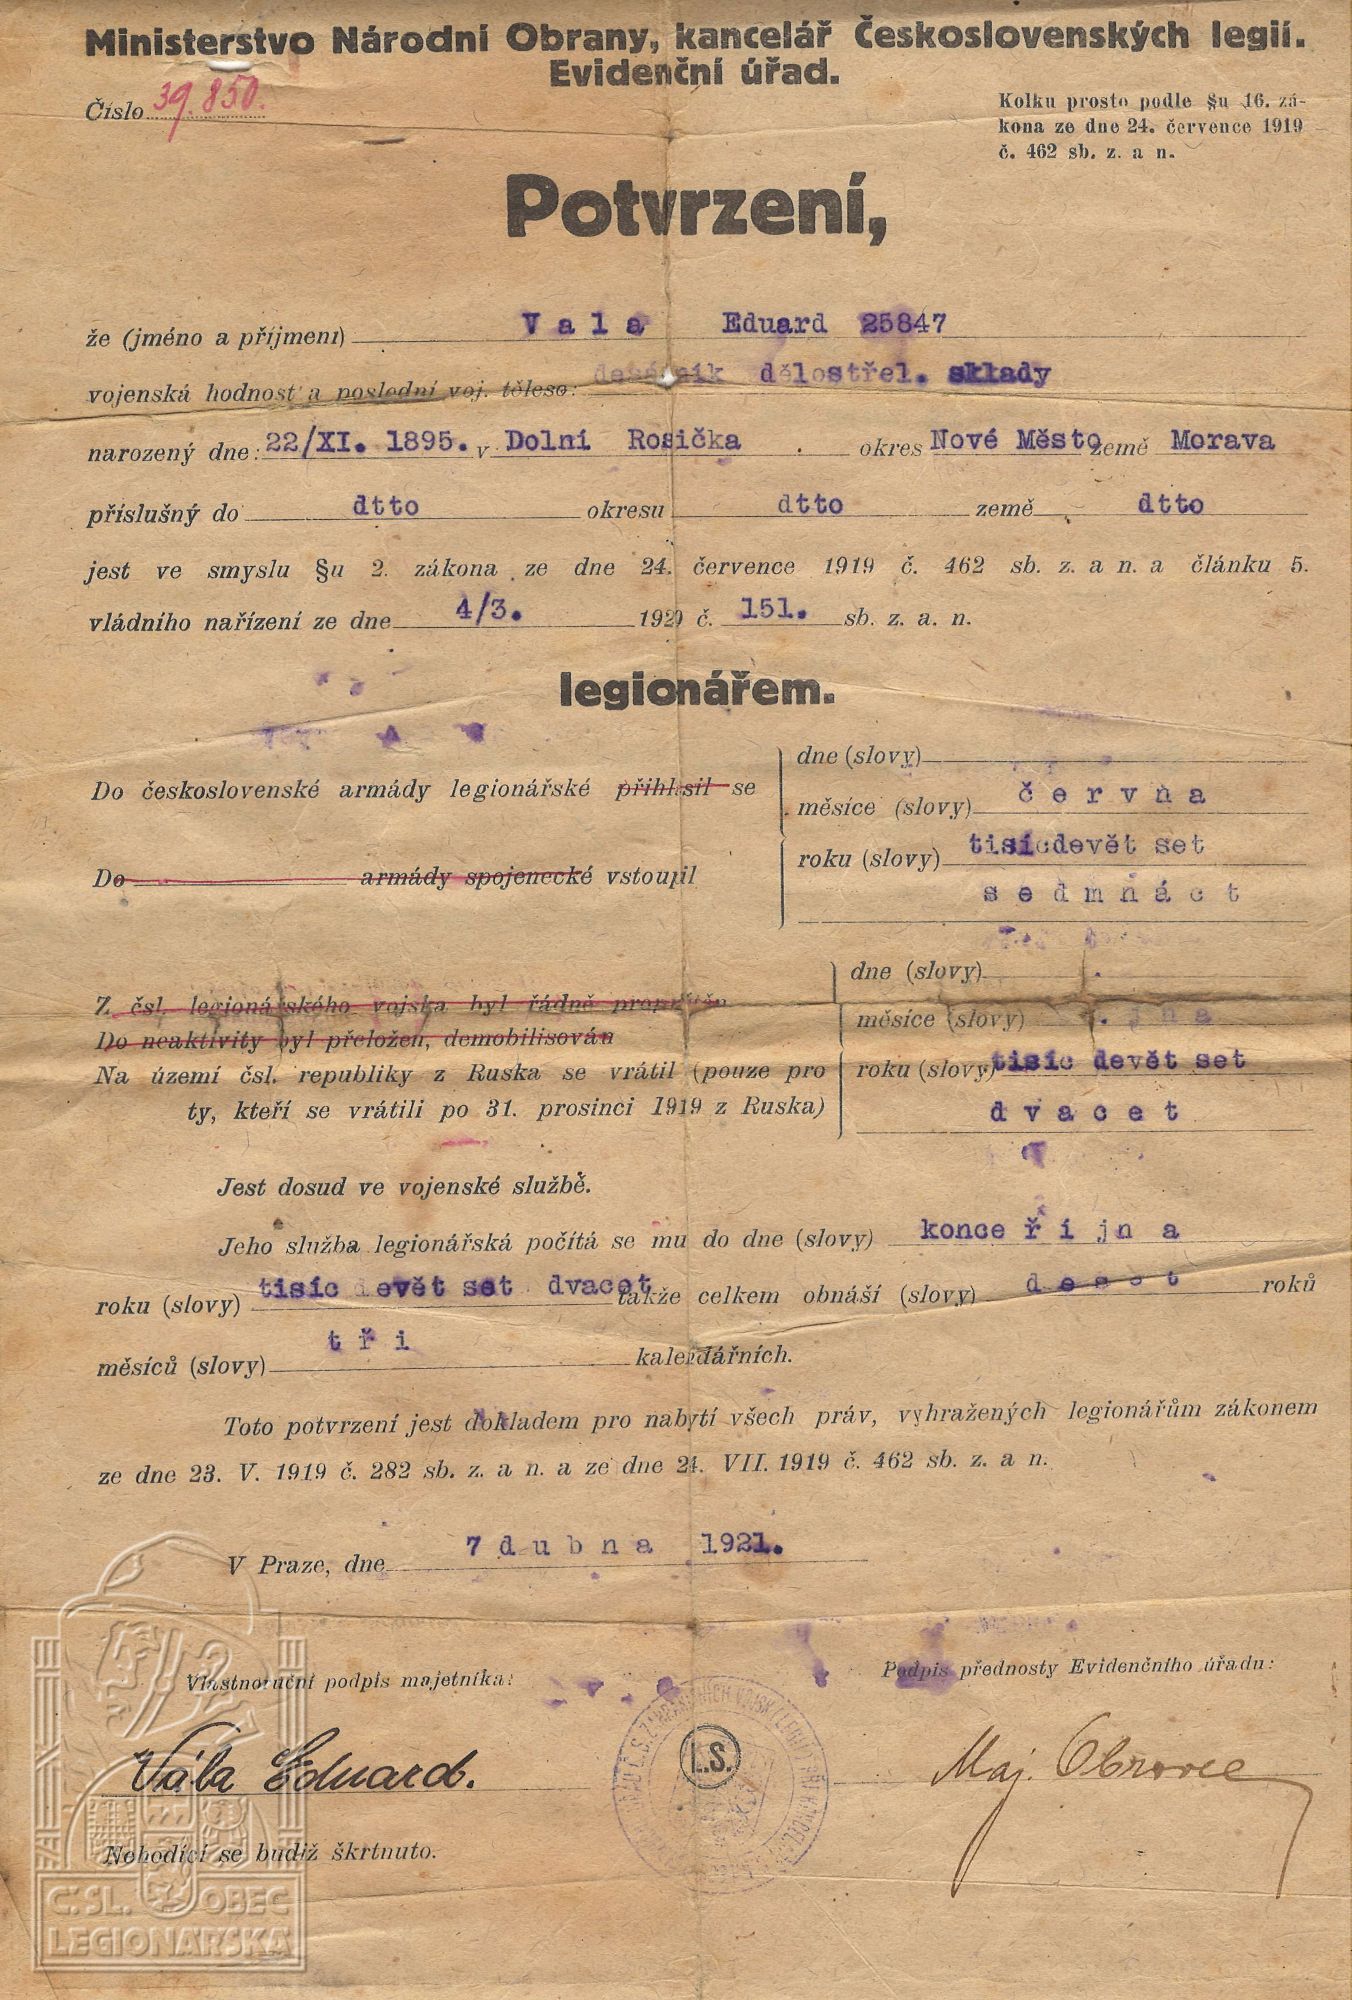 Ministerstvo Národní Obrany, kancelář Československých legií.
Evidenční úřad.
Číslo 39.850.
Kolku prosto podle §u 16. zá-
kona ze dne 24. července 1919
č. 462 sb. z. a n.
Potvrzení,
že (jméno a příjmení) Vala Eduard 25847
vojenská hodnost a poslední voj. těleso: dělostřel. sklady
narozený dne: 22/XI. 1895. v Dolní Rosička okres Nové Město země Morava
příslušný do dtto okresu dtto země dtto
jest ve smyslu §u 2. zákona ze dne 24. července 1919 č. 462 sb. z. a n. a článku 5.
vládního nařízení ze dne 4/3. 1920 č. 151. sb. z. a. n.
legionářem.
Do československé armády legionářské přihlásil se
Do armády spojenecké vstoupil
dne (slovy)
měsíce (slovy) června
roku (slovy) tisícdevět set
sedmnáct
Z čsl. legionářského vojska byl řádně propuštěn
Do neaktivity byl přeložen, demobilisován
Na území čsl. republiky z Ruska se vrátil (pouze pro
ty, kteří se vrátili po 31. prosinci 1919 z Ruska)
dne (slovy)
měsíce (slovy)
roku (slovy) tisíc devět set
dvacet
Jest dosud ve vojenské službě.
Jeho služba legionářská počítá se mu do dne (slovy) konce října
roku (slovy) tisíc devět set dvacet takže celkem obnáší (slovy) deset roků
měsíců (slovy) tři kalendářních.
Toto potvrzení jest dokladem pro nabytí všech práv, vyhražených legionářům zákonem
ze dne 23. V. 1919 č. 282 sb. z. a n. a ze dne 24. VII. 1919 č. 462 sb. z. a n.
V Praze, dne 7 dubna 1921.
Vlastnoruční podpis majetníka:
Podpis přednosty Evidenčního úřadu:
Vála Eduard.
L.S.
Maj.
Nehodící se budiž škrtnuto.
Č.SL. OBEC
LEGIONÁŘSKÁ